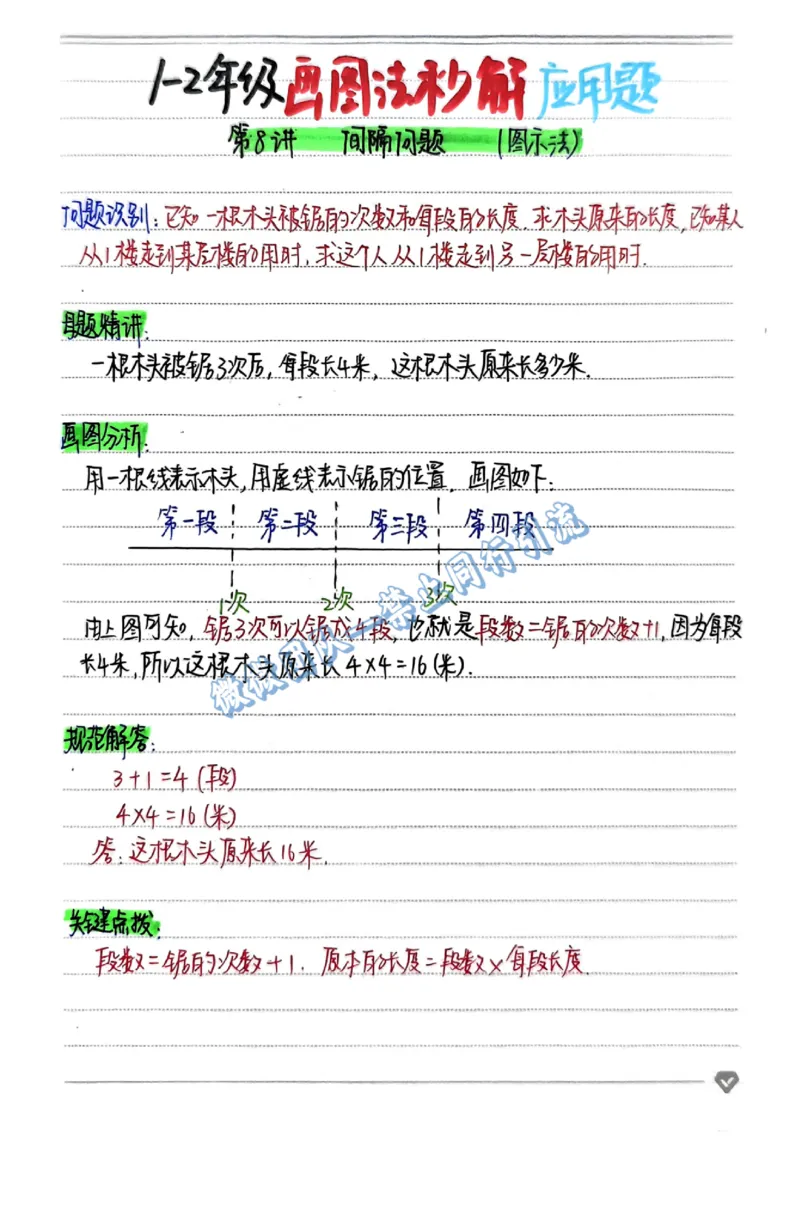 1-2年级画图法秒解应用题
第8讲 间隔问题 (图示法)
问题识别:已知一根木头被锯的次数和每段的长度,求木头原来的长度,已知某人
从1楼走到某层楼的用时,求这个人从1楼走到另一层楼的用时.
母题精讲:
一根木头被锯3次后,每段长4米,这根木头原来长多少米.
画图分析:
用一根线表示木头,用虚线表示锯的位置.画图如下:
第一段 第二段 第三段 第四段
1次 2次 3次
由上图可知,锯3次可以锯成4段,也就是段数=锯的次数+1,因为每段
长4米,所以这根木头原来长4×4=16(米).
规范解答:
3+1=4(段)
4×4=16(米)
答:这根木头原来长16米.
关键点拨:
段数=锯的次数+1.原本的长度=段数×每段长度.
禁止同行引流